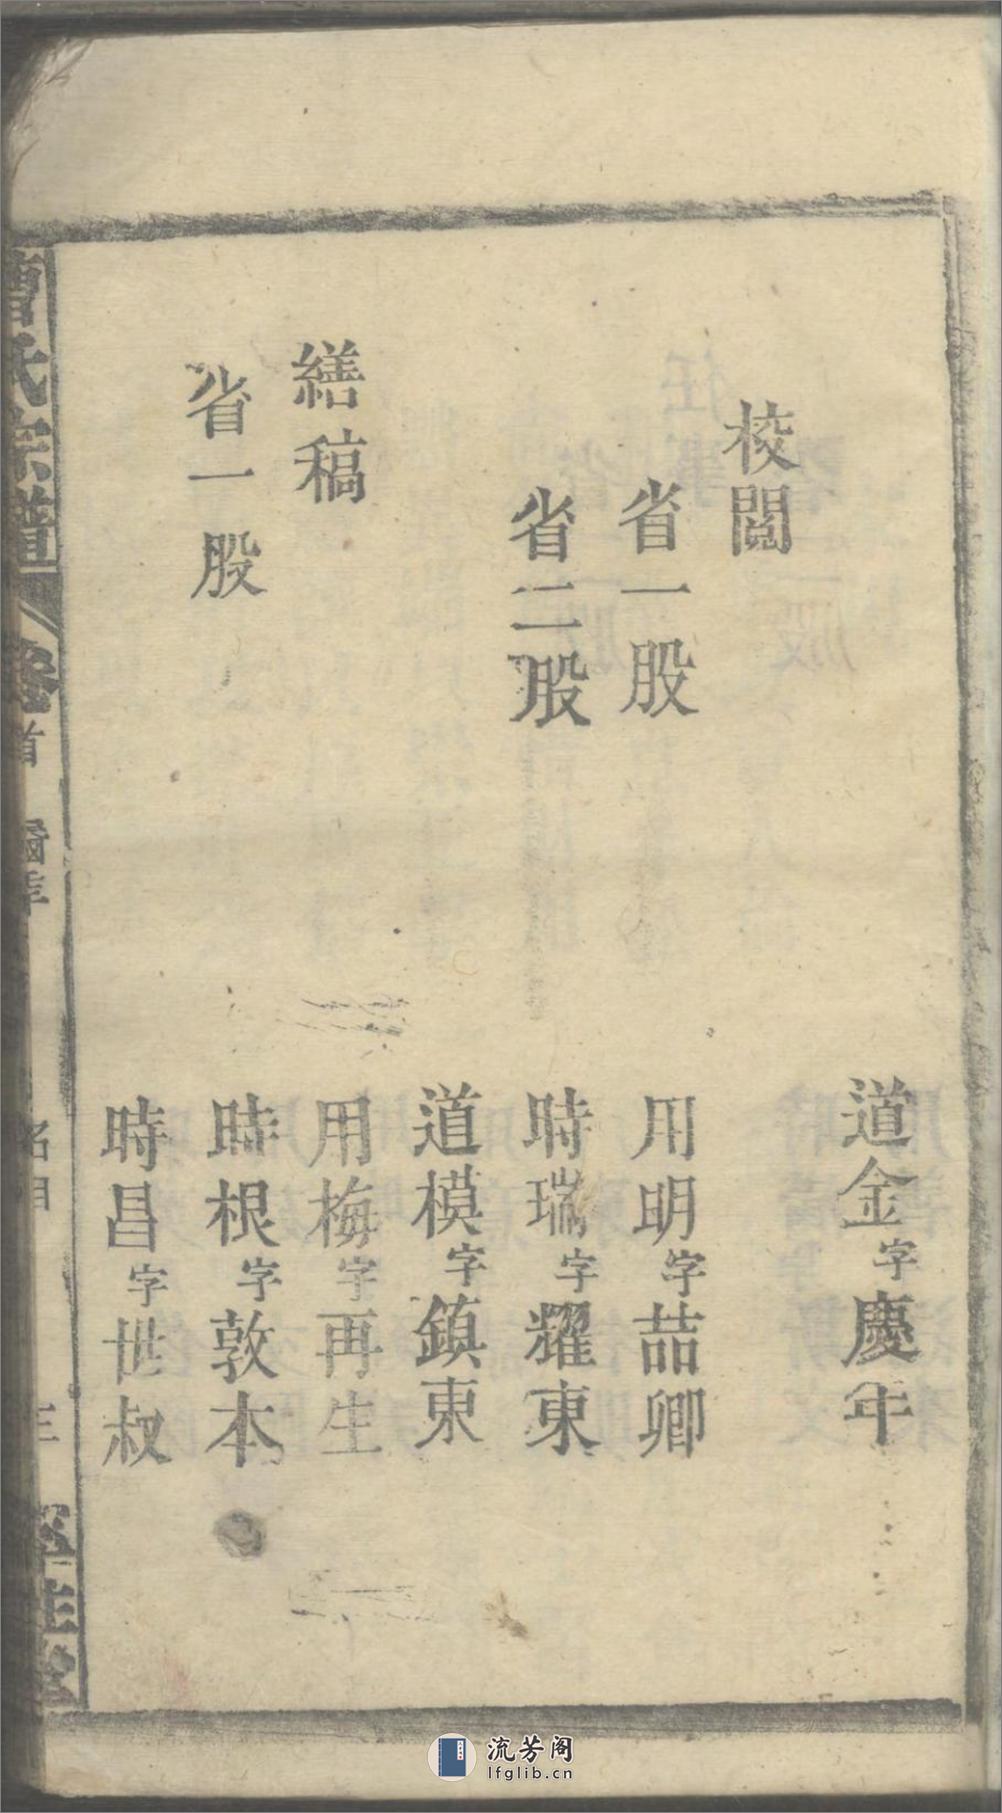 道金字慶年
校閱
省一股 用明字喆卿
省二股 時瑞字耀東
道模字鎮東
繕稿 用梅字再生
省一股 時根字敦本
時昌字世叔
曹氏宗譜 卷首
三
流芳阁
lfglib.cn